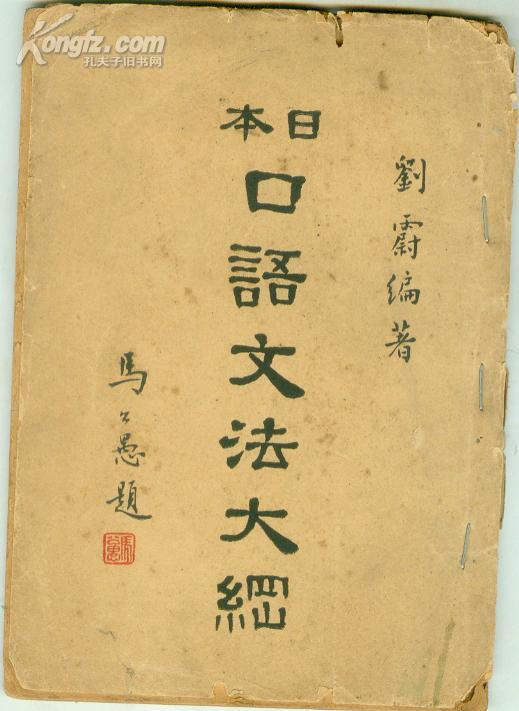 Kongfz.com
孔夫子旧书网
劉霨編著
日本
口語文法大綱
馬公愚題